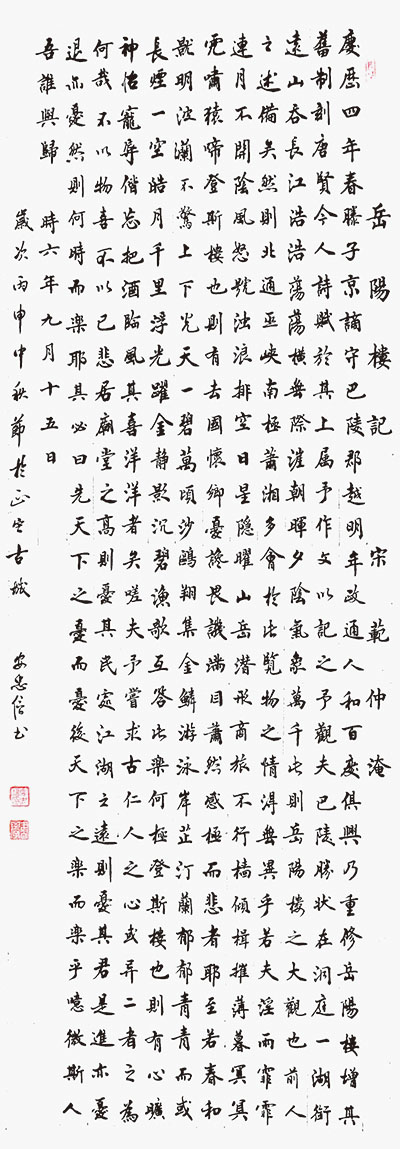 岳陽樓記 宋 範仲淹
慶曆四年春滕子京謫守巴陵郡越明年政通人和百廢俱興乃重修岳陽樓增其
舊制刻唐賢今人詩賦於其上属予作文以記之予觀夫巴陵勝状在洞庭一湖銜
遠山吞長江浩浩蕩蕩橫無際涯朝暉夕陰氣象萬千此則岳陽樓之大觀也前人
之述備矣然則北通巫峽南極瀟湘多會於此覽物之情得無異乎若夫淫雨霏霏
連月不開陰風怒號濁浪排空日星隱曜山岳潛形商旅不行檣傾楫摧薄暮冥冥
虎嘯猿啼登斯樓也則有去國懷鄉憂讒畏譏滿目蕭然感極而悲者耶至若春和
景明波瀾不驚上下光天一碧萬頃沙鷗翔集金鱗游泳岸芷汀蘭郁郁青青而或
長煙一空皓月千里浮光躍金静影沉碧漁歌互答此樂何極登斯樓也則有心曠
神怡寵辱偕忘把酒臨風其喜洋洋者矣嗟夫予嘗求古仁人之心或异二者之為
何哉不以物喜不以己悲居廟堂之高則憂其民處江湖之遠則憂其君是進亦憂
退亦憂然則何時而樂耶其必曰先天下之憂而憂後天下之樂而樂乎噫微斯人
吾誰與歸 時六年九月十五日
歲次丙申中秋節於正定古城 安忠信書